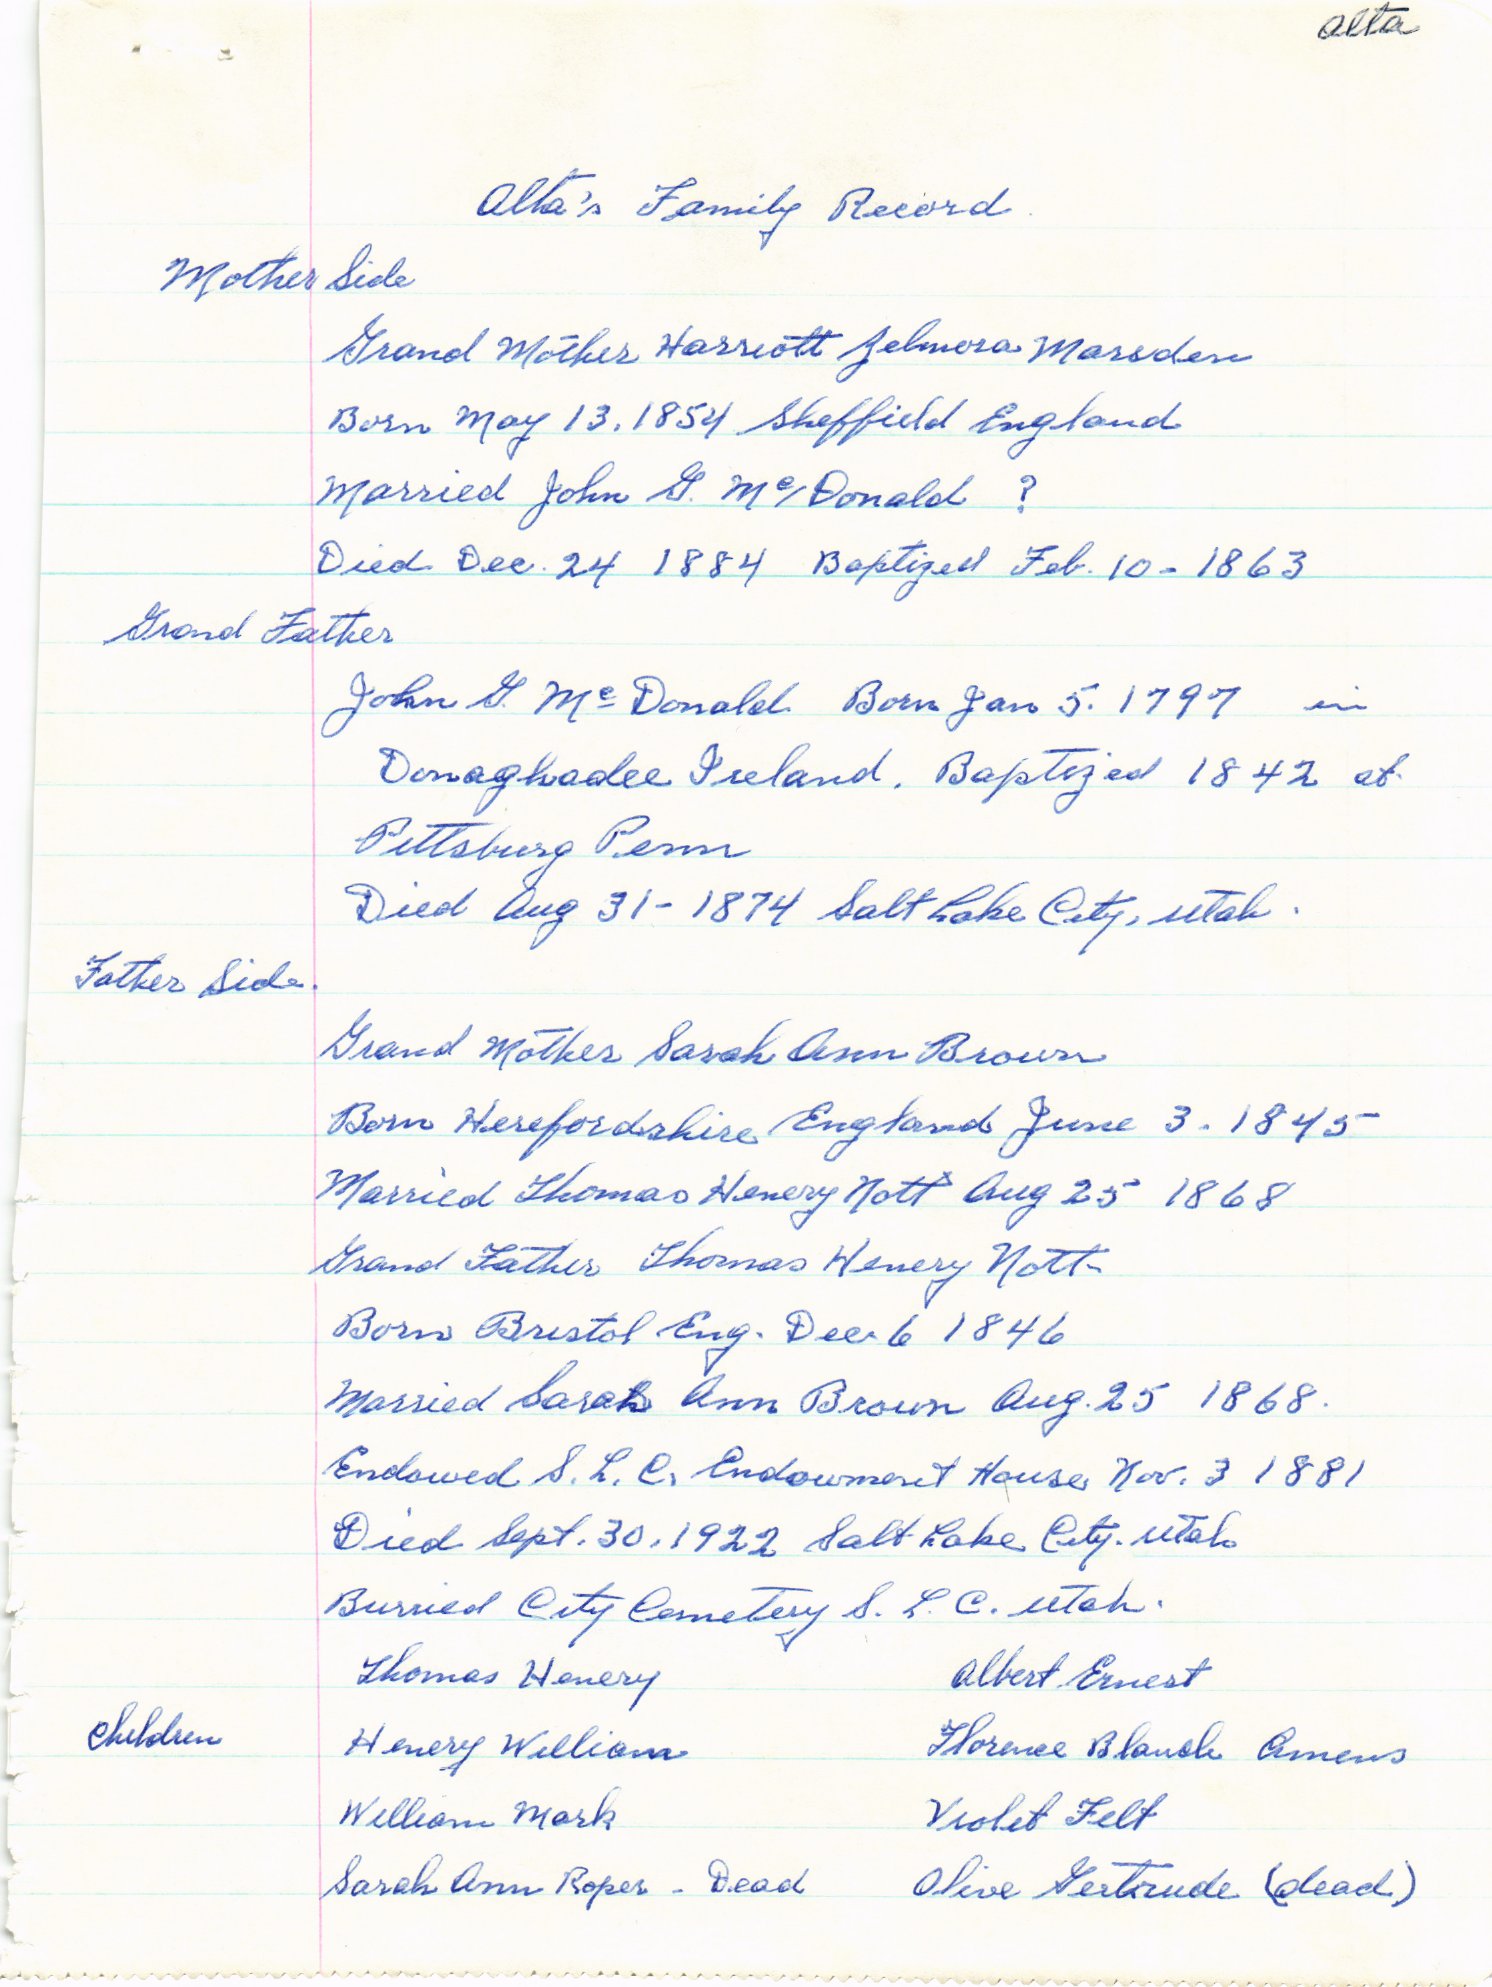 Alta
Alta's Family Record
Mother Side
Grand Mother Harriott Zelmora Marsden
Born May 13, 1854 Sheffield England
Married John G. Mc Donald ?
Died Dec. 24 1884 Baptized Feb. 10 - 1863
Grand Father
John G. Mc Donald Born Jan 5. 1797 in
Donaghadee Ireland. Baptized 1842 at
Pittsburg Penn
Died Aug 31 - 1874 Salt Lake City, Utah.
Father Side.
Grand Mother Sarah Ann Brown
Born Herefordshire England June 3. 1845
Married Thomas Henery Nott Aug 25 1868
Grand Father Thomas Henery Nott
Born Bristol Eng. Dec. 6 1846
Married Sarah Ann Brown Aug. 25 1868.
Endowed S. L. C. Endowment House Nov. 3 1881
Died Sept. 30, 1922 Salt Lake City. Utah
Burried City Cemetery S. L. C. Utah.
Thomas Henery Albert Ernest
Children Henery William Florence Blanch Amens
William Mark Violet Felt
Sarah Ann Roper - Dead Olive Gertrude (dead)